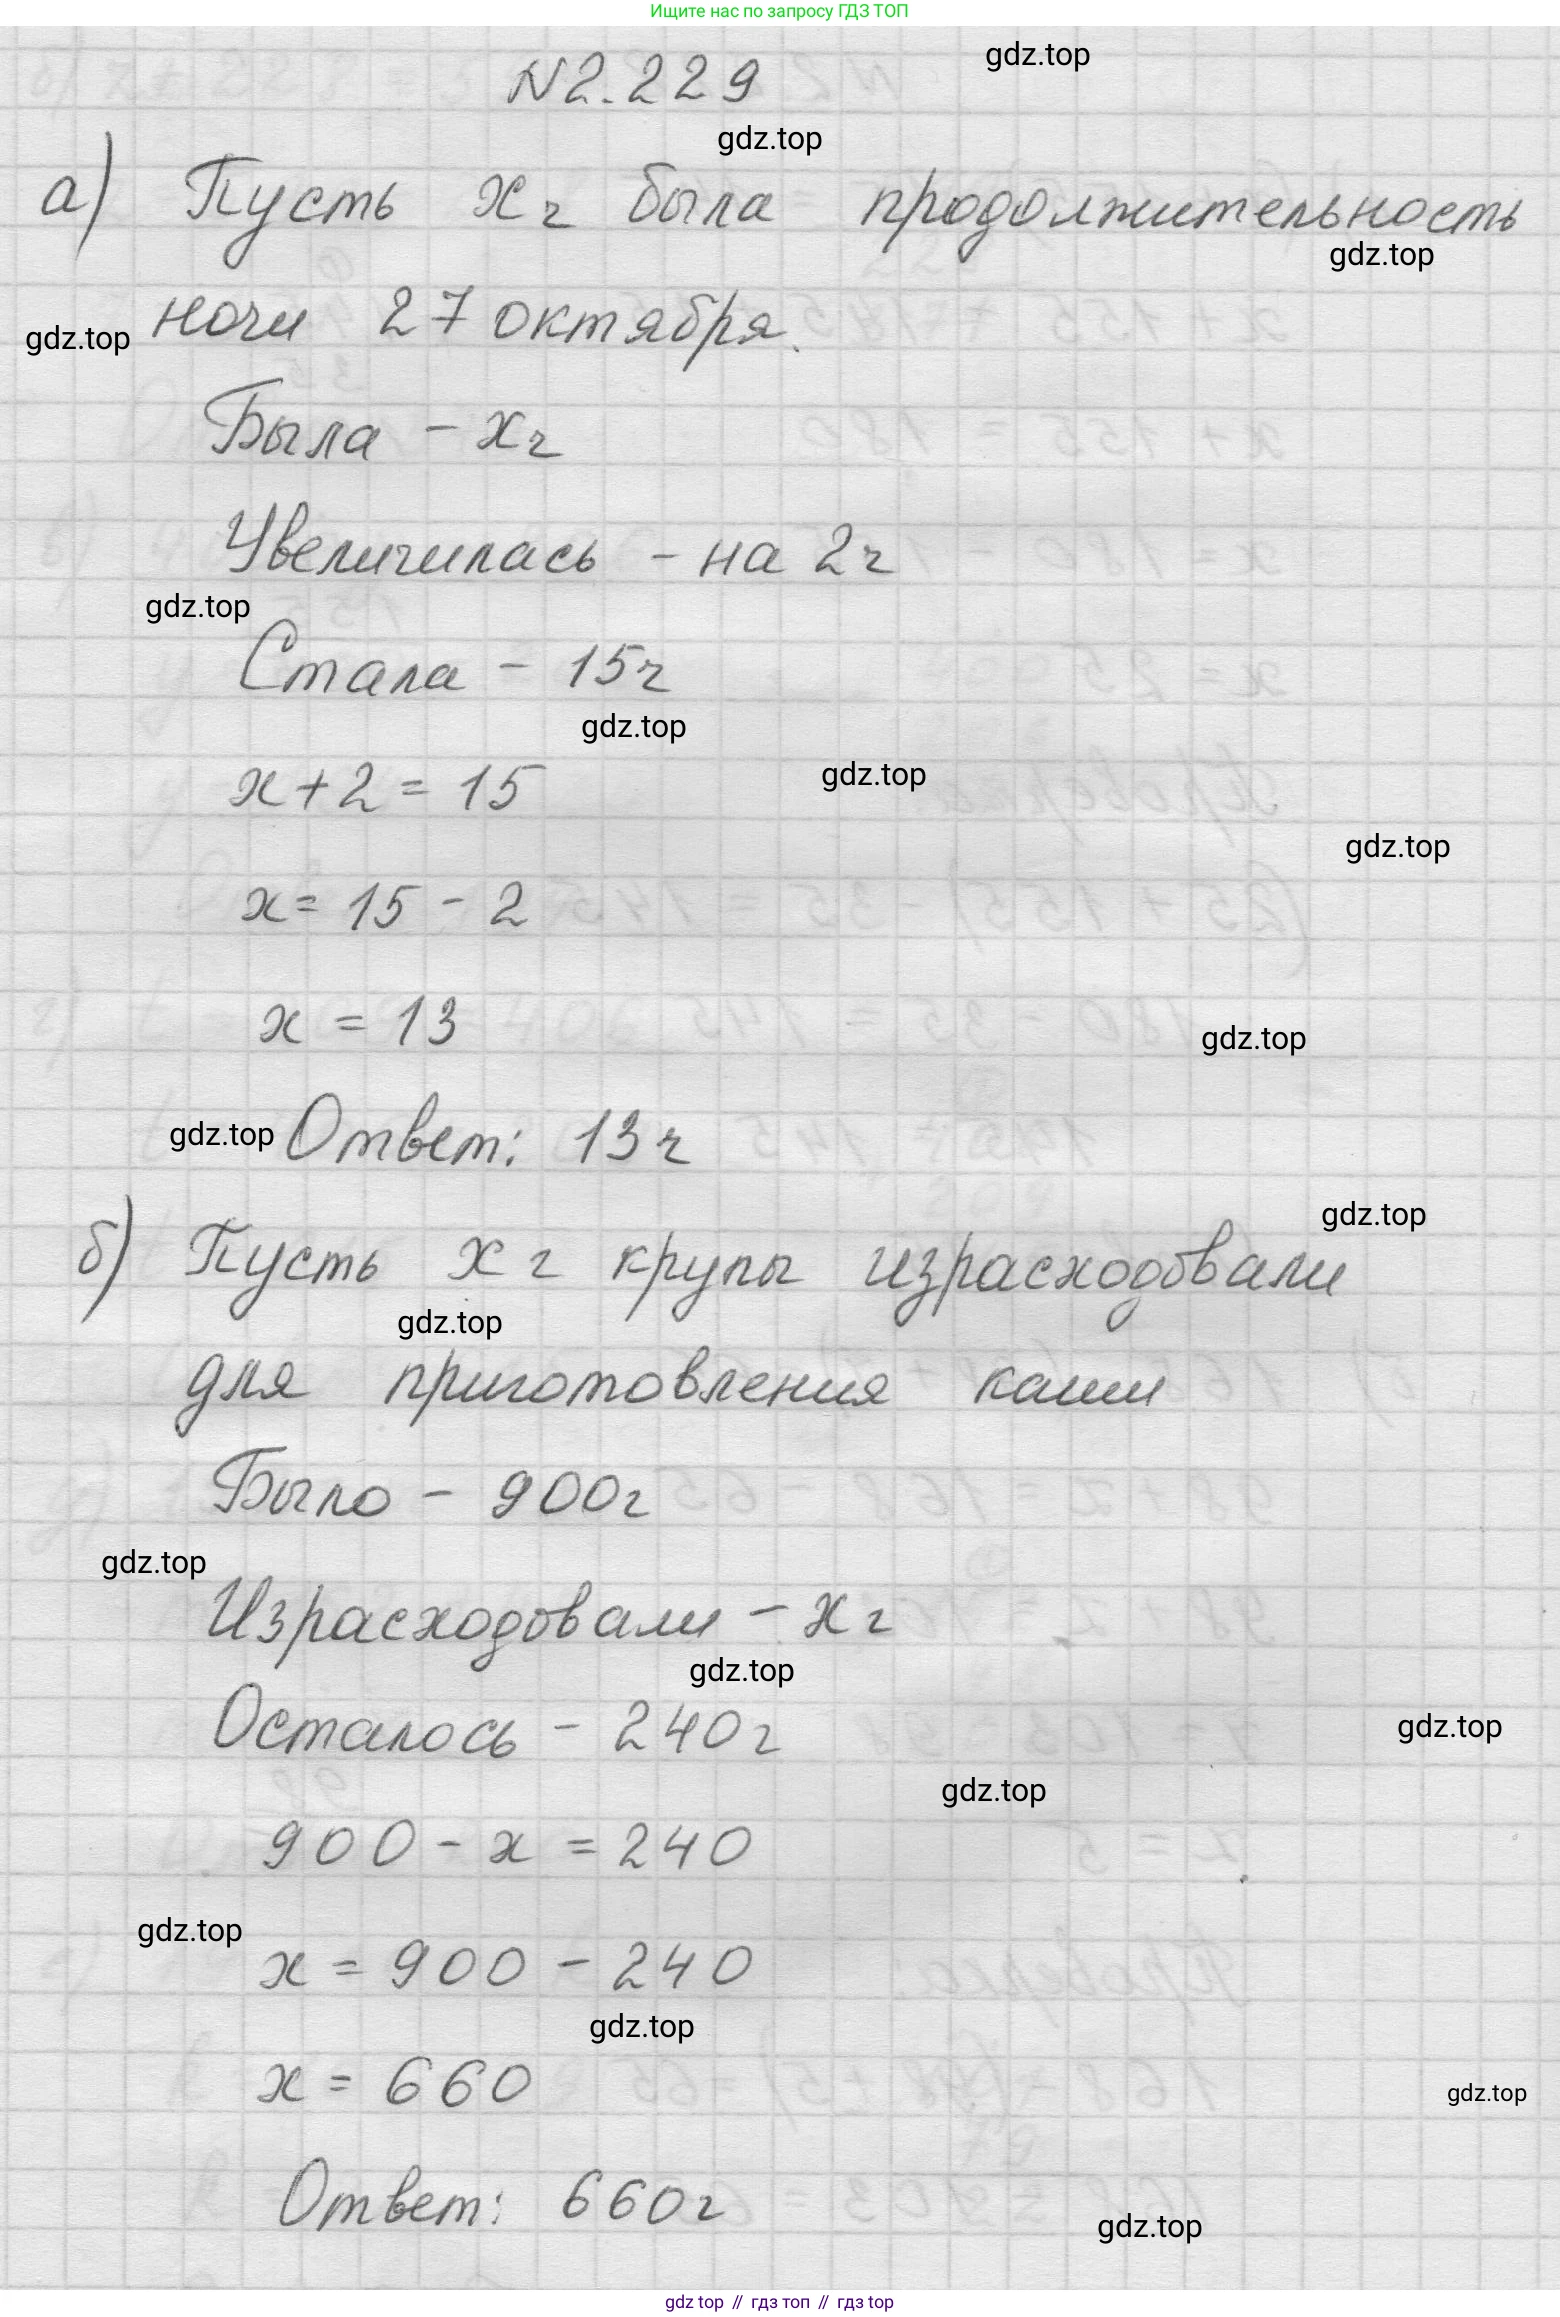 Ищите нас по запросу ГДЗ ТОП
gdz.top
N2.229
gdz.top
а) Пусть x ч была продолжительность
gdz.top
ночи 27 октября.
gdz.top
Была - x ч
Увеличилась - на 2 ч
gdz.top
Стала - 15 ч
gdz.top
x + 2 = 15
gdz.top
gdz.top
x = 15 - 2
x = 13
gdz.top
gdz.top
Ответ: 13 ч
gdz.top
б) Пусть x г крупы израсходовали
gdz.top
для приготовления каши
Было - 900 г
gdz.top
Израсходовали - x г
gdz.top
Осталось - 240 г
gdz.top
gdz.top
900 - x = 240
gdz.top
x = 900 - 240
gdz.top
x = 660
gdz.top
Ответ: 660 г
gdz.top
gdz top // гдз топ // гдз top